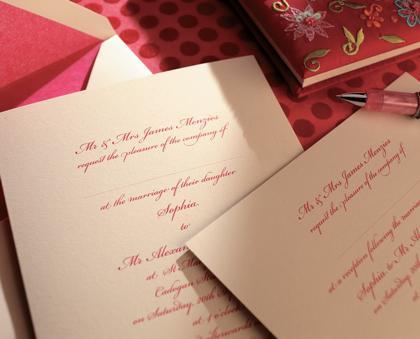 Mr & Mrs James Menzies
request the pleasure of the company of
at the marriage of their daughter
Sophia
to
Mr Alexan
at St M
Cadogan Str
on Saturday, 20th
at 4 o'c
Mr & Mrs James Menzies
request the pleasure of the company of
at a reception following the marriage
Sophia to Mr Alex
on Saturday